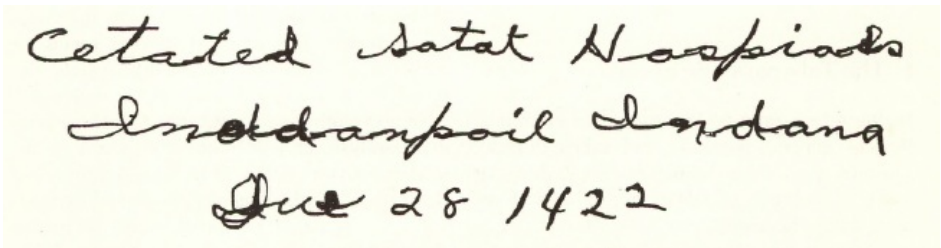 Cetated Satat Hospiaols
Inddanpoil Indana
Jue 28 1422